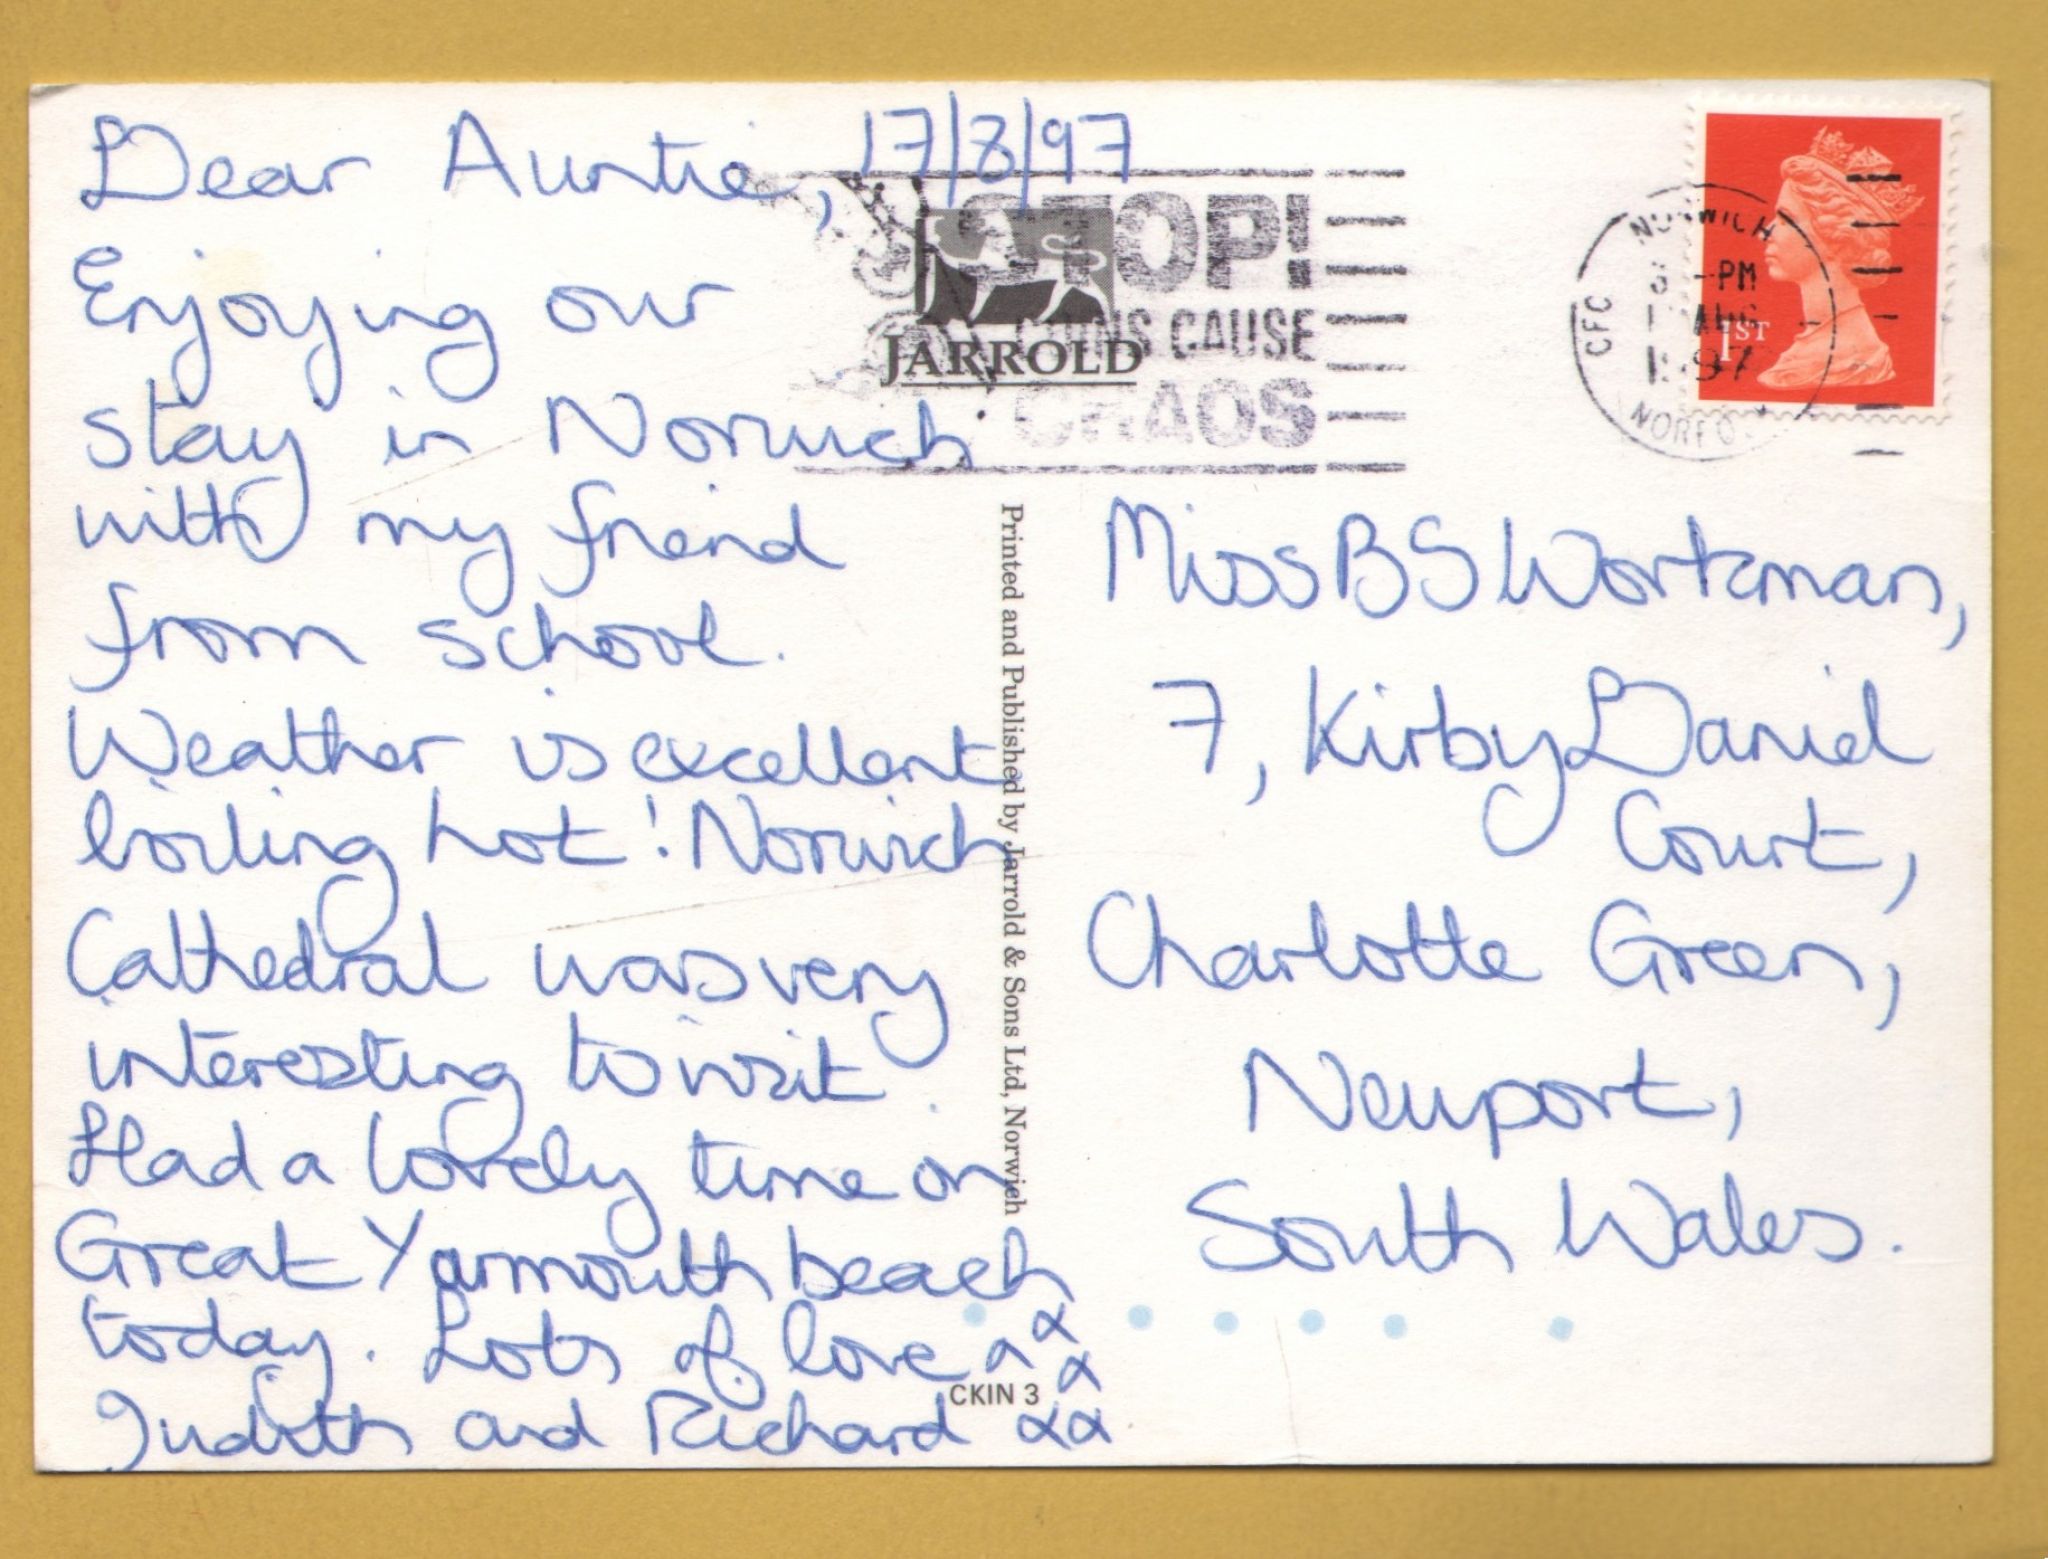 Dear Auntie, 17/8/97
Enjoying our
stay in Norwich
with my friend
from school.
Weather is excellent
boiling hot! Norwich
Cathedral was very
interesting to visit.
Had a lovely time on
Great Yarmouth beach
today. Lots of love
Judith and Richard
JARROLD
STOP!
CAUSE
CHAOS
Printed and Published by Jarrold & Sons Ltd, Norwich
CKIN 3
NORWICH
PM
AUG
1997
CFC
1ST
Miss B S Workman,
7, Kirby Daniel
Court,
Charlotte Green,
Newport,
South Wales.